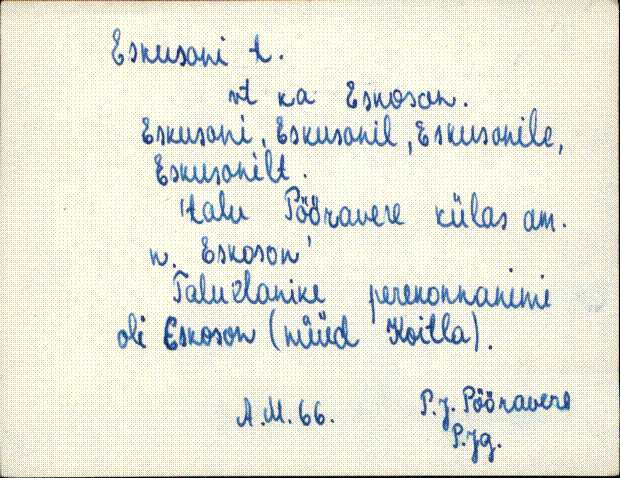 Eskusoni t.
vt ka Eskoson.
Eskusoni, Eskusonil, Eskusonile,
Eskusonilt.
'talu Pööravere külas am.
n. Eskoson'
Taluelanike perekonnanimi
oli Eskoson (nüüd Koitla).
A.M. 66. P.J. Pööravere
P.Jg.